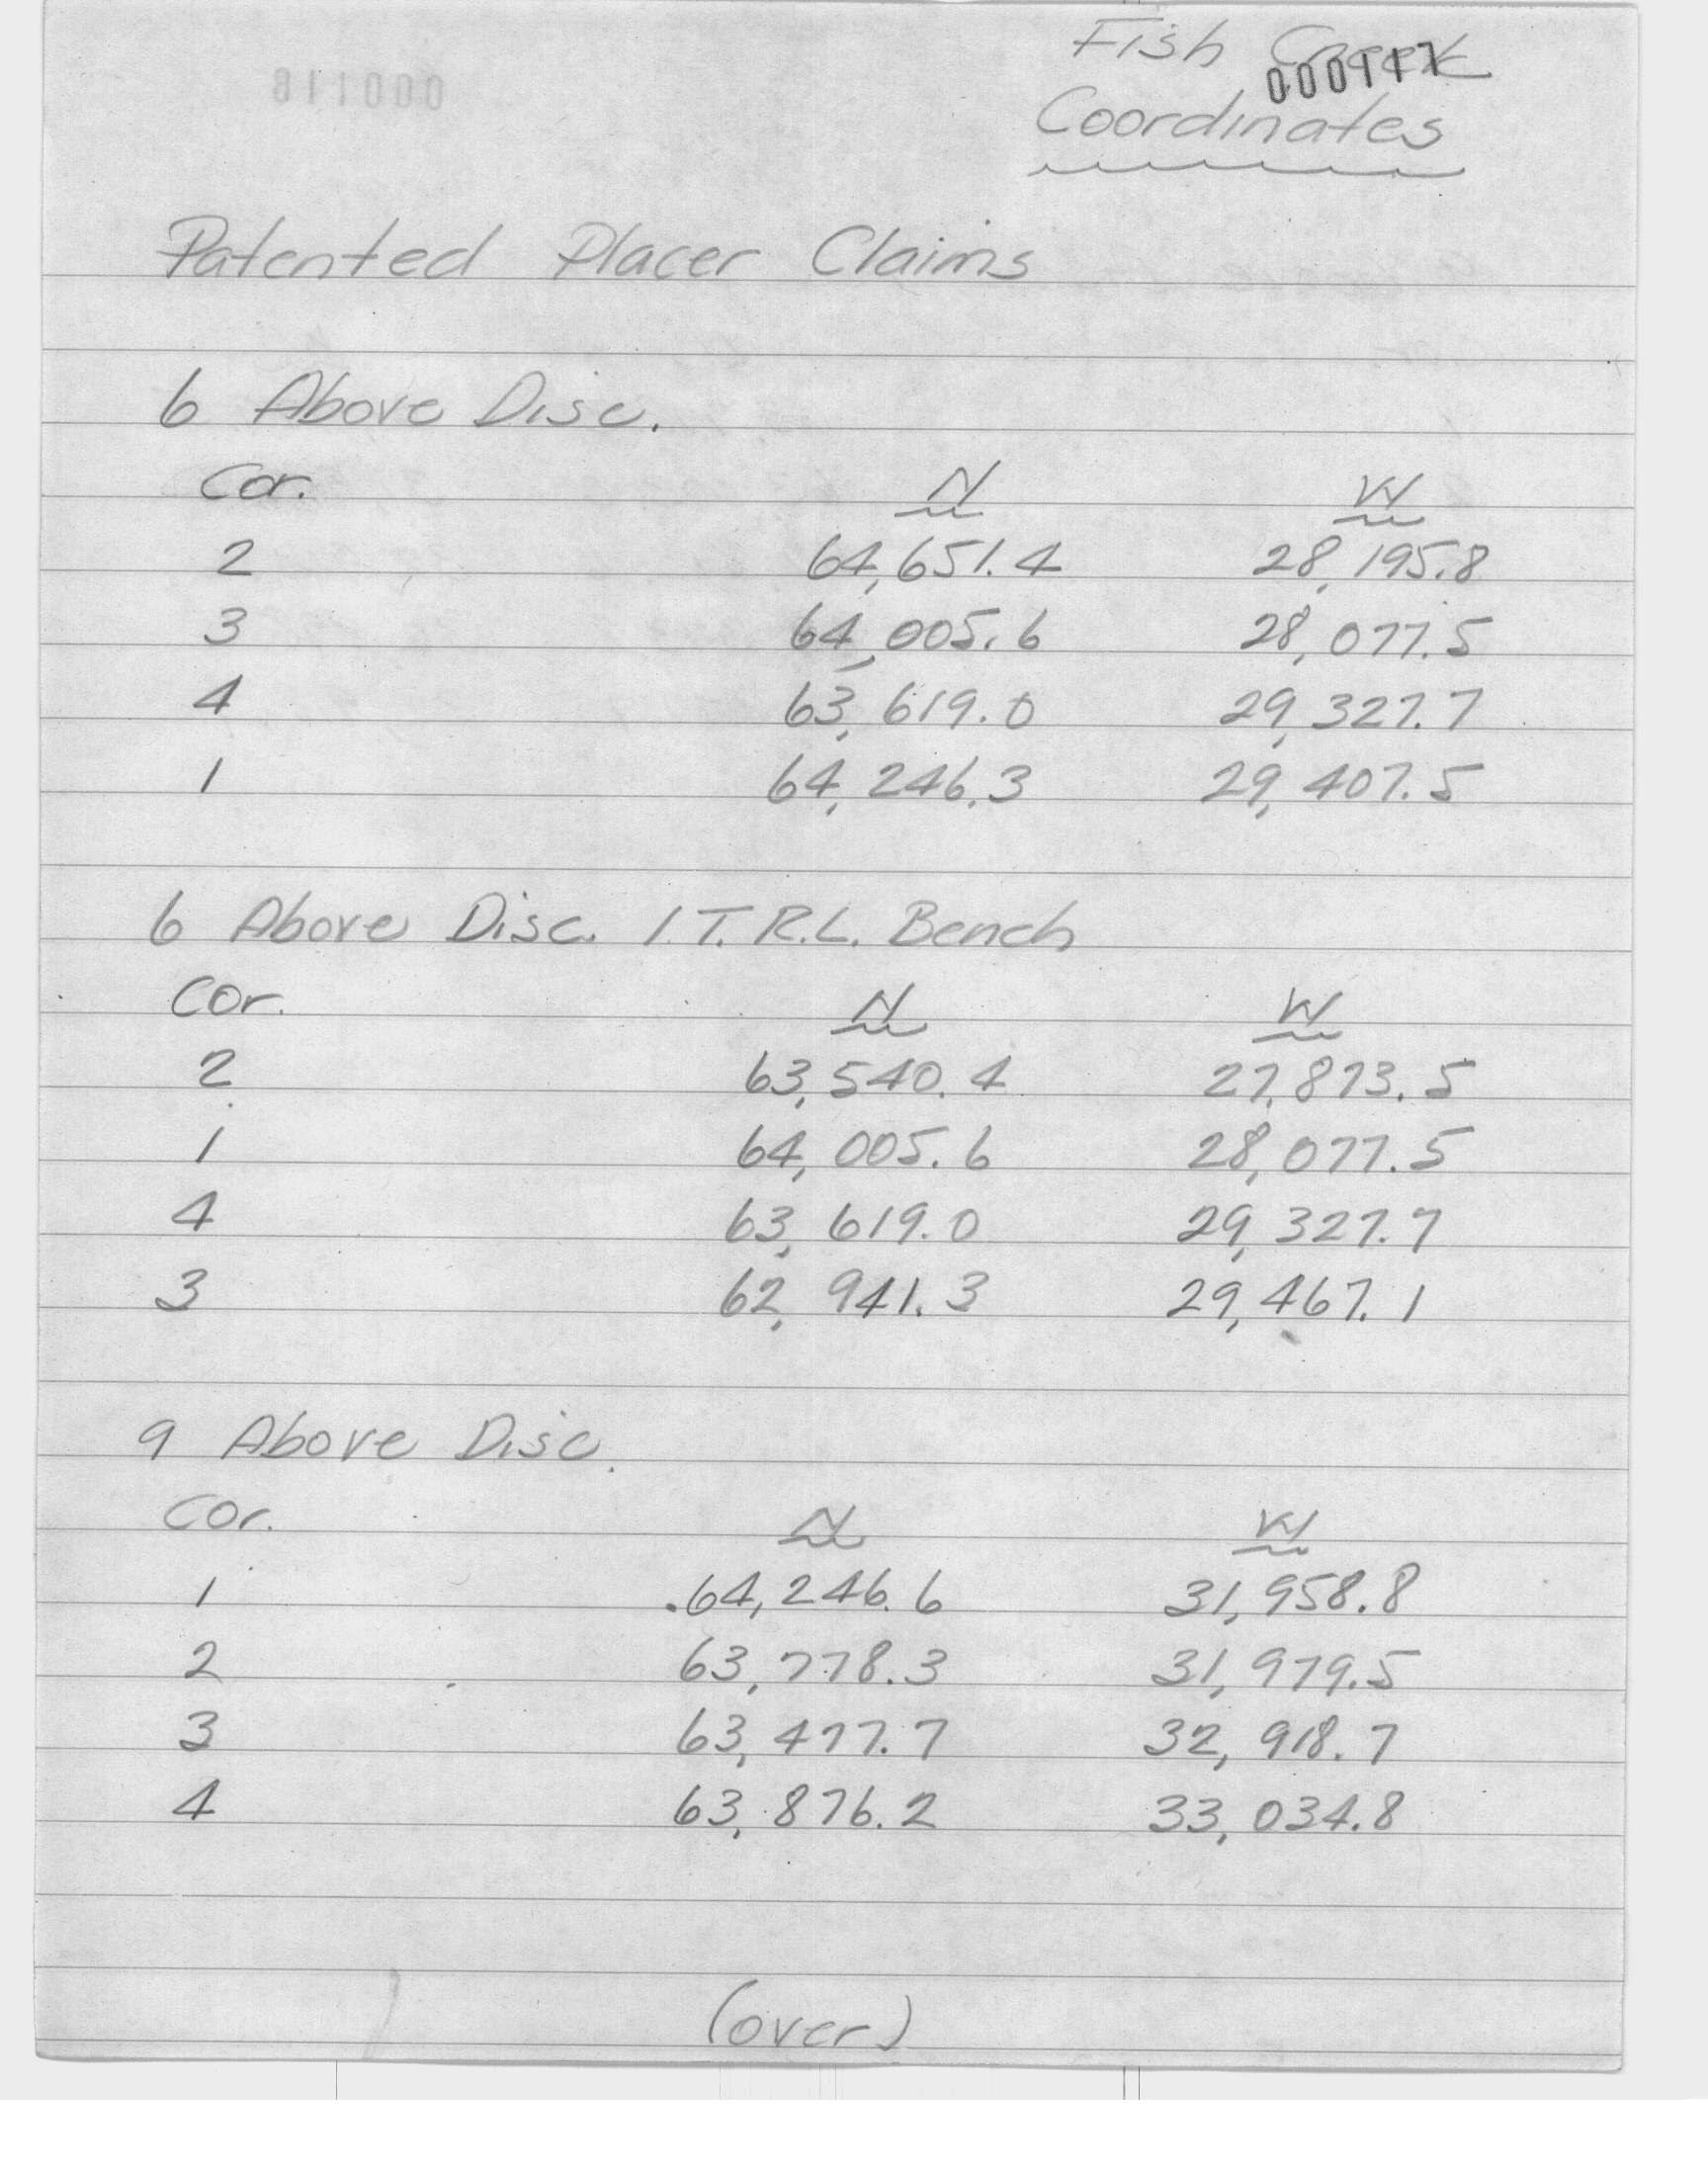 Fish Creek
000117
000118
Coordinates
Patented Placer Claims
6 Above Disc.
Cor. N W
2 64,651.4 28,195.8
3 64,005.6 28,077.5
4 63,619.0 29,327.7
1 64,246.3 29,407.5
6 Above Disc. 1.T.R.L. Bench
Cor. N W
2 63,540.4 27,873.5
1 64,005.6 28,077.5
4 63,619.0 29,327.7
3 62,941.3 29,467.1
9 Above Disc.
Cor. N W
1 64,246.6 31,958.8
2 63,778.3 31,979.5
3 63,477.7 32,918.7
4 63,876.2 33,034.8
(over)